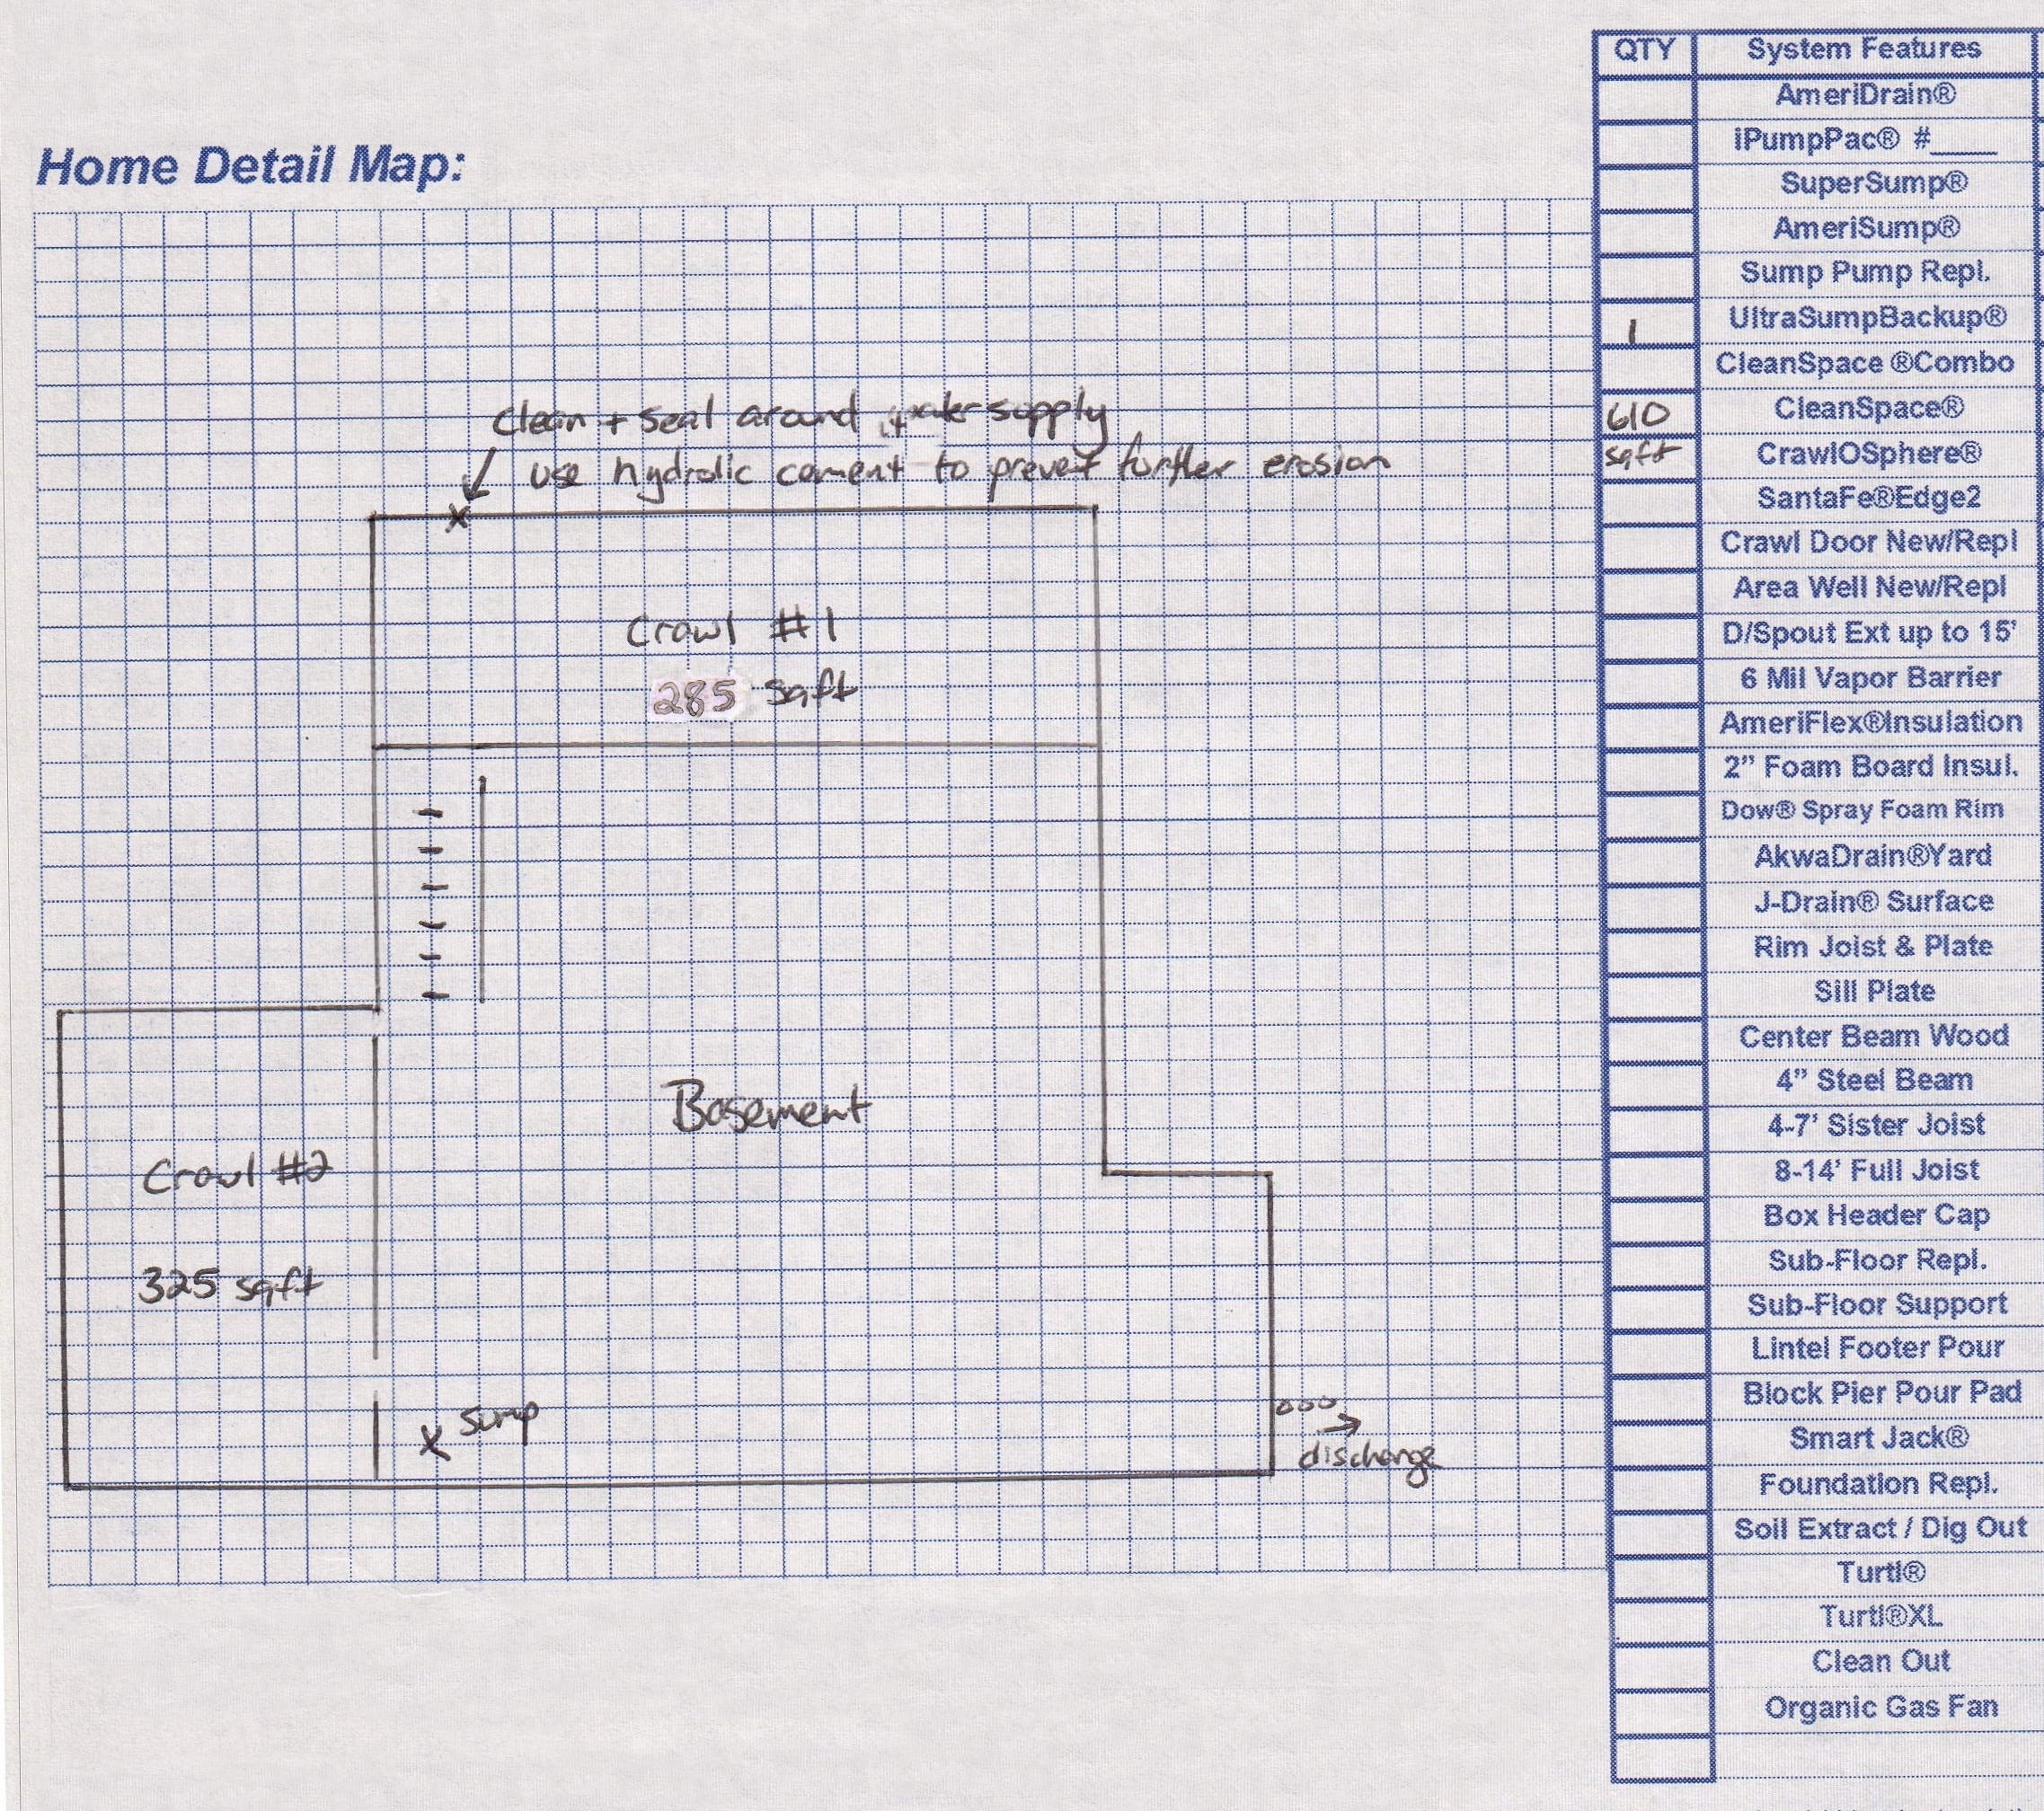 Home Detail Map:
clean + seal around water supply
use hydrolic cement to prevet further erosion
Crawl #1
285 sqft
Basement
Crawl #2
325 sqft
sump
discharge
QTY System Features
AmeriDrain®
iPumpPac® #____
SuperSump®
AmeriSump®
Sump Pump Repl.
1 UltraSumpBackup®
CleanSpace ®Combo
610 CleanSpace®
sqft CrawlOSphere®
SantaFe®Edge2
Crawl Door New/Repl
Area Well New/Repl
D/Spout Ext up to 15'
6 Mil Vapor Barrier
AmeriFlex®Insulation
2” Foam Board Insul.
Dow® Spray Foam Rim
AkwaDrain®Yard
J-Drain® Surface
Rim Joist & Plate
Sill Plate
Center Beam Wood
4” Steel Beam
4-7’ Sister Joist
8-14’ Full Joist
Box Header Cap
Sub-Floor Repl.
Sub-Floor Support
Lintel Footer Pour
Block Pier Pour Pad
Smart Jack®
Foundation Repl.
Soil Extract / Dig Out
Turtl®
Turtl®XL
Clean Out
Organic Gas Fan